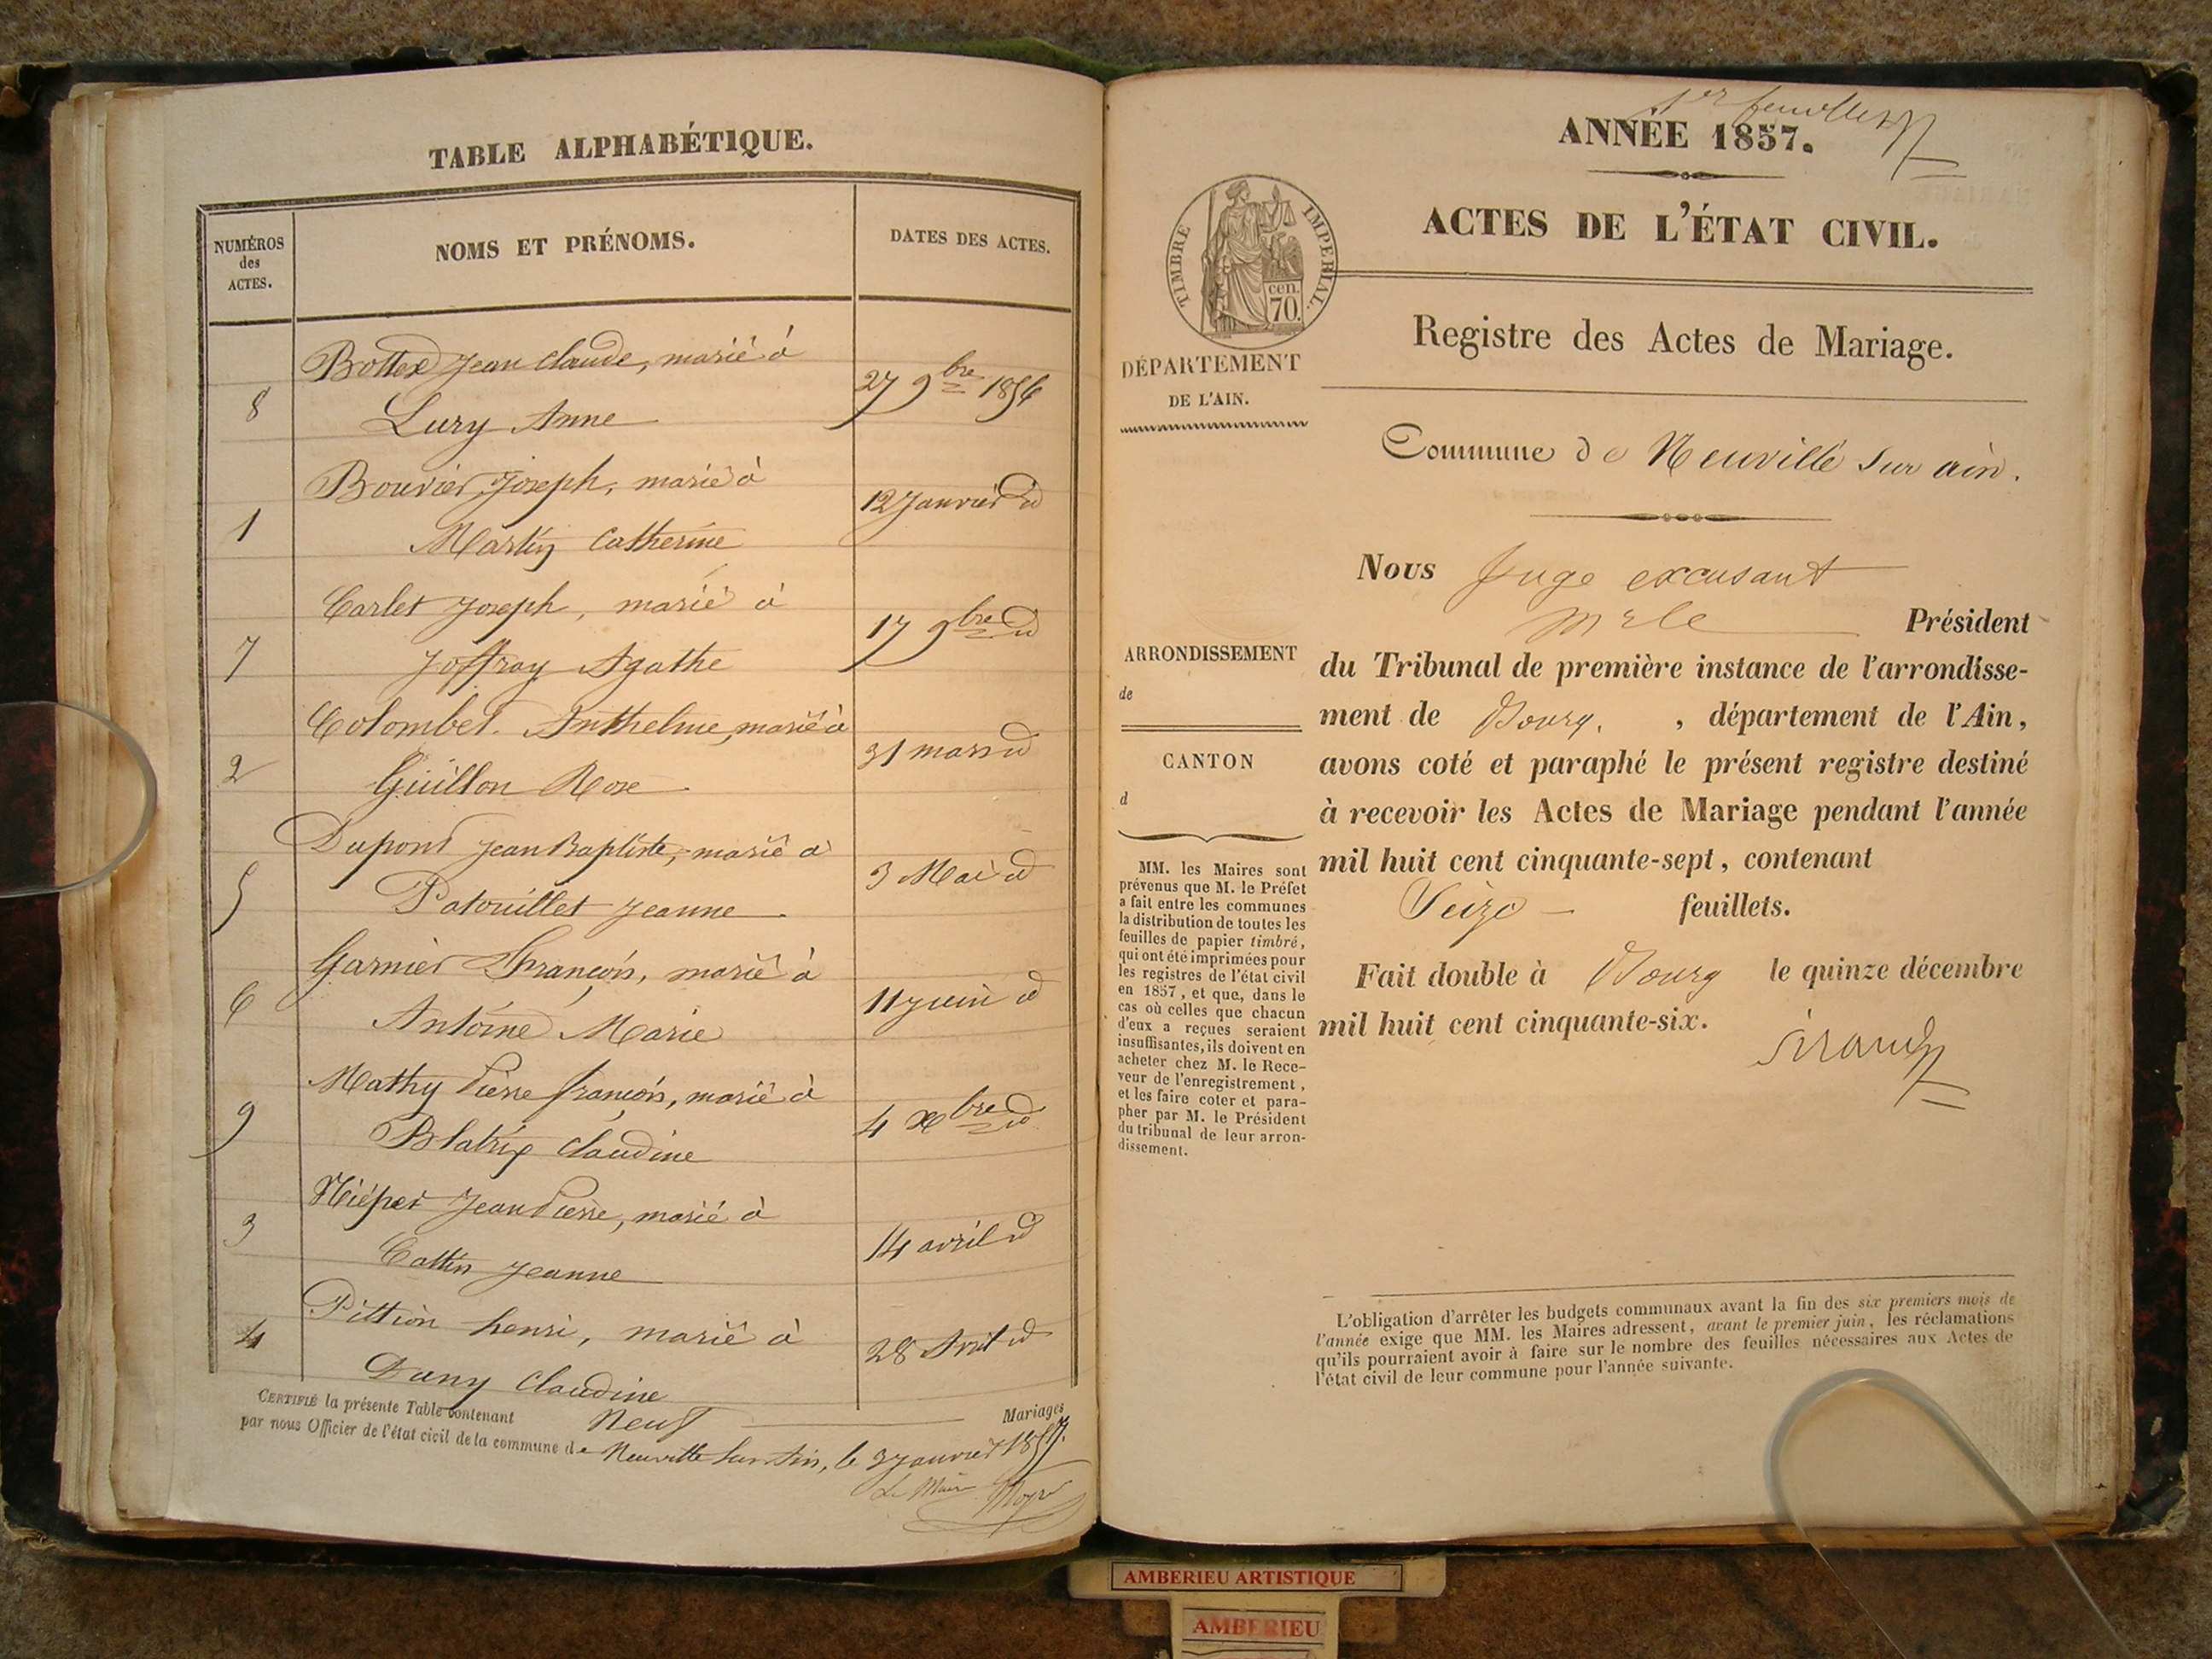 TABLE ALPHABÉTIQUE.
NUMÉROS
des
ACTES.
NOMS ET PRÉNOMS.
DATES DES ACTES.
Bottex Jean Claude, marié à
8
27 9bre 1856
Lury Anne
Bouvier Joseph, marié à
1
12 Janvier id
Martin Catherine
Carlet Joseph, marié à
7
17 9bre id
Joffray Agathe
Colombet Anthelme, marié à
2
31 mars id
Guillon Rose
Dupont Jean Baptiste, marié à
5
3 Mai id
Patouillet Jeanne
Garnier François, marié à
6
11 juin id
Antoine Marie
Mathy Pierre françois, marié à
9
4 Xbre id
Blatrix Claudine
Niépet Jean Pierre, marié à
3
14 avril id
Cattin Jeanne
Pittion henri, marié à
4
28 Avril id
Dany Claudine
CERTIFIÉ la présente Table contenant Neuf Mariages
par nous Officier de l'état civil de la commune de Neuville sur Ain, le 3 janvier 1857.
Le Maire
1er feuillet
ANNÉE 1857.
ACTES DE L'ÉTAT CIVIL.
TIMBRE IMPERIAL.
cen.
70.
DÉPARTEMENT
DE L'AIN.
Registre des Actes de Mariage.
Commune de Neuville sur ain.
Nous Juge excusant
Mr le Président
ARRONDISSEMENT
de
CANTON
d
du Tribunal de première instance de l'arrondisse-
ment de Bourg, , département de l'Ain,
avons coté et paraphé le présent registre destiné
à recevoir les Actes de Mariage pendant l'année
mil huit cent cinquante-sept, contenant
Seize feuillets.
Fait double à Bourg le quinze décembre
mil huit cent cinquante-six.
Sirand
MM. les Maires sont
prévenus que M. le Préfet
a fait entre les communes
la distribution de toutes les
feuilles de papier timbré,
qui ont été imprimées pour
les registres de l'état civil
en 1857, et que, dans le
cas où celles que chacun
d'eux a reçues seraient
insuffisantes, ils doivent en
acheter chez M. le Rece-
veur de l'enregistrement,
et les faire coter et para-
pher par M. le Président
du tribunal de leur arron-
dissement.
L'obligation d'arrêter les budgets communaux avant la fin des six premiers mois de
l'année exige que MM. les Maires adressent, avant le premier juin, les réclamations
qu'ils pourraient avoir à faire sur le nombre des feuilles nécessaires aux Actes de
l'état civil de leur commune pour l'année suivante.
AMBERIEU ARTISTIQUE
AMBERIEU